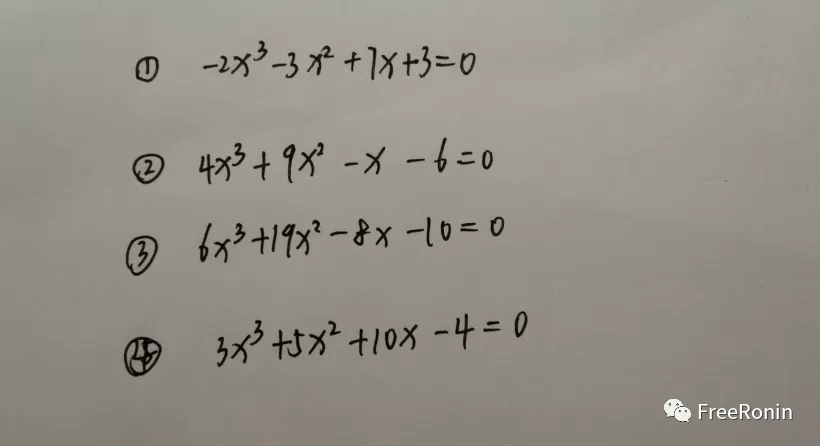 ① -2x³-3x²+7x+3=0
② 4x³+9x²-x-6=0
③ 6x³+19x²-8x-10=0
④ 3x³+5x²+10x-4=0
FreeRonin